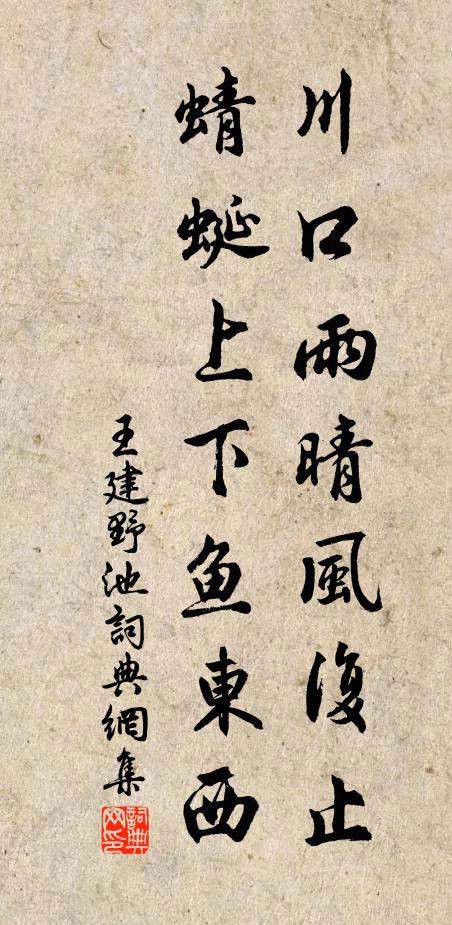 川口雨晴風復止
蜻蜓上下魚東西
王建野池詞典網集
詞典网印